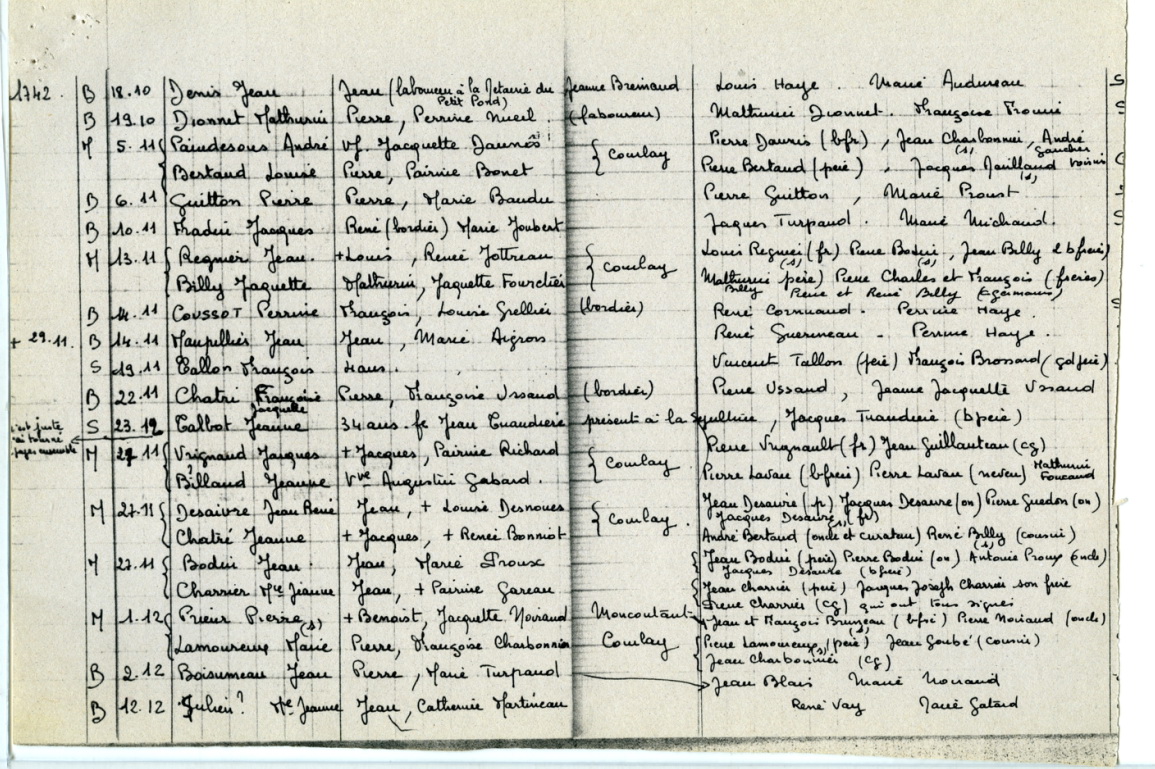 1742. B 18.10 Denis Jean Jean (laboureur à la Métairie du Petit Pond) Jeanne Bremaud Louis Haye. Marie Andureau S
B 19.10 Dionnet Mathurin Pierre, Perrine Nueil. (laboureur) Mathurin Dionnet. Françoise S
M 5.11 Paindesous André vf. Jacquette Daunès { Courlay Pierre Dauris (bfr), Jean Charbonnier, André Gaucher
Bertaud Louise Pierre, Pairnie Bonet Pierre Bertaud (père), Jacques (s) voisin
B 6.11 Guitton Pierre Pierre, Marie Baudu Pierre Guitton, Marie Proust
B 10.11 Fradin Jacques René (bordier) Marie Joubert Jaques Turpaud. Marie Michaud. S
M 13.11 Regnier Jean. +Louis, Renée Jottreau { Courlay Louis Regnier (fr) Pierre Bodin, Jean Billy 2 bfrères)
Billy Jaquette Mathurin, Jaquette Fourestier Mathurin Billy (s) père) Pierre Charles et François (s) (frères)
Pierre et René Billy (c germains)
B 14.11 Coussot Perrine François, Louise Grellier (bordier) René Cornuaud. Perrine Haye. S
+ 29.11. B 14.11 Maupillier Jean Jean, Marie Aigron René Guerineau - Perrine Haye.
S 19.11 Tallon François 4 ans. Vincent Tallon (père) François Brossard (gd père)
B 22.11 Chatri Françoise Jacquette Pierre, Françoise Ussaud (bordier) Pierre Ussaud, Jeanne Jacquette Ussaud
c'est juste
S 23.12 Talbot Jeanne 34 ans. fe Jean Tuandière présent à la sépulture, Jacques Tuandière (bpère)
pages ensemble
M 27 11 Vrignaud Jacques + Jacques, Pairnie Richard { Courlay Pierre Vrignault (fr) Jean Guillauteau (cg)
Billaud Jeanne Vve Augustin Gabard. Pierre Lavau (bfrère) Pierre Lavau (neveu) Mathurin Foucaud
M 27.11 Desaivre Jean René Jean, + Louise Desnoues { Courlay. Jean Desaivre (p) Jacques Desaivre (on) Pierre Guedon (on)
Jacques Desaivre (s) (fr)
Chatré Jeanne + Jacques, + Renée Bonniot André Bertaud (oncle et curateur) René Billy (cousin)
M 27.11 Bodin Jean. Jean, Marie Proux Jean Bodin (père) Pierre Bodin (on) (s) Antoine Proux (oncle)
Jacques Desaivre (bfrère)
Charrier Mie Jeanne Jean, + Pairnie Gareau Jean Charrier (père) Jacques Joseph Charrier son frère
Pierre Charrier (cg) qui ont tous signés
M 1.12 Prieur Pierre (s) + Benoist, Jacquette Noiraud Moncoutant Jean et François Bruneau (bfré) Pierre Noiraud (oncle)
Lamoureux Marie Pierre, Françoise Charbonnier Courlay Pierre Lamoureux (s) (père) Jean Goubé (cousin)
Jean Charbonnier (s) (cg)
B 2.12 Boisumeau Jean Pierre, Marie Turpaud Jean Blais Marie Noiraud
B 12.12 Julien? Mie Jeanne Jean, Catherine Martineau René Vay Marie Gatard